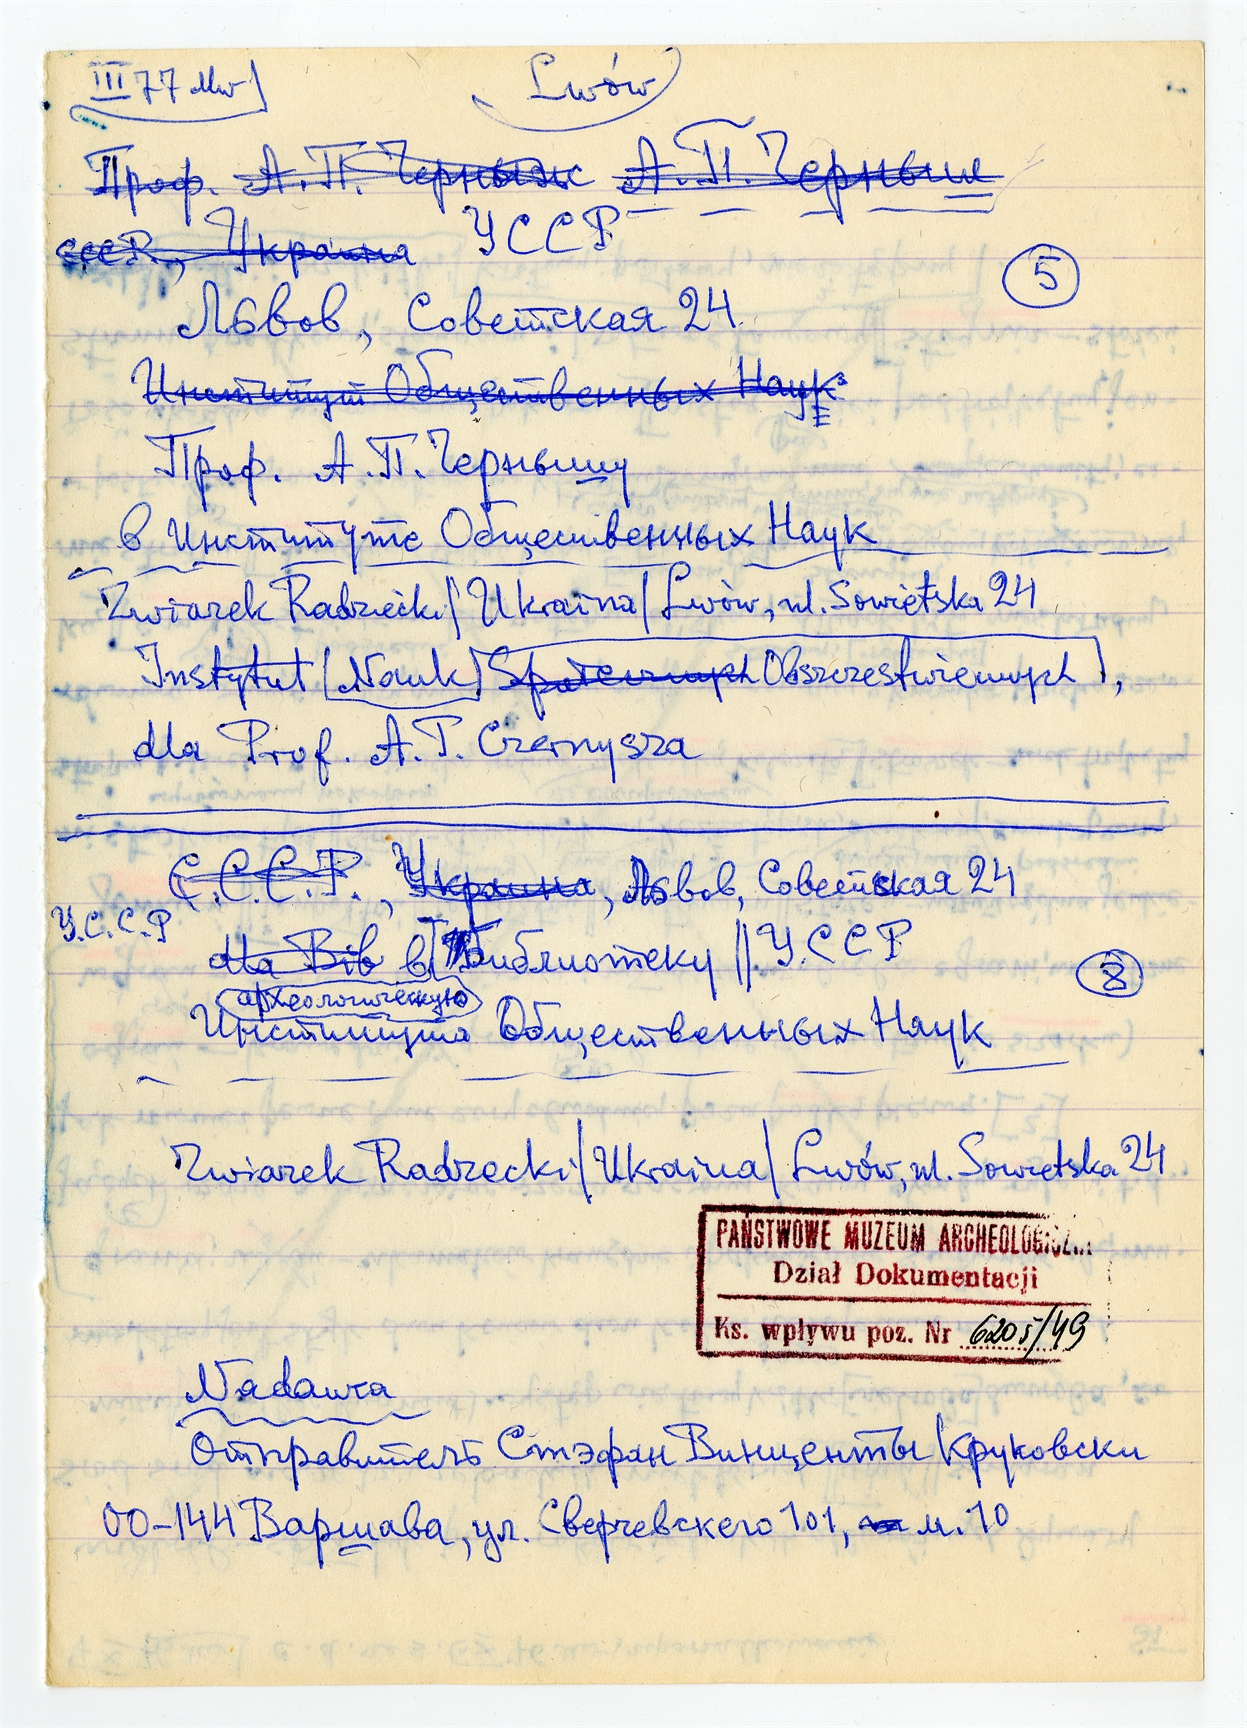 III 77 Mw
Lwów
Проф. А.П. Черныш А.П. Черныш
СССР, Украина УССР
5
Львов, Советская 24
Институт Общественных Наук
Проф. А.П. Чернышу
в Институте Общественных Наук
Związek Radziecki / Ukraina / Lwów, ul. Sowietska 24
Instytut [Nauk] Społecznych Obszczestwiennych],
dla Prof. A.P. Czernysza
С.С.С.Р., Украина, Львов, Советская 24
У.С.С.Р
dla Bib в Библиотеку || У.ССР
8
археологическую
Института Общественных Наук
Związek Radziecki / Ukraina / Lwów, ul. Sowietska 24
PAŃSTWOWE MUZEUM ARCHEOLOGICZN
Dział Dokumentacji
Ks. wpływu poz. Nr 6205/49
Nadawca
Отправитель Стэфан Винценты Круковски
00-144 Варшава, ул. Сверчевскего 101, м. 10